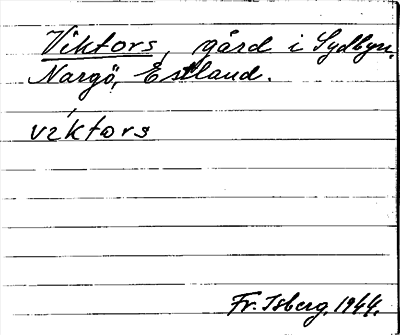 Viktors, gård i Sydbyn,
Nargö, Estland.
viktors
Fr. Isberg. 1944.